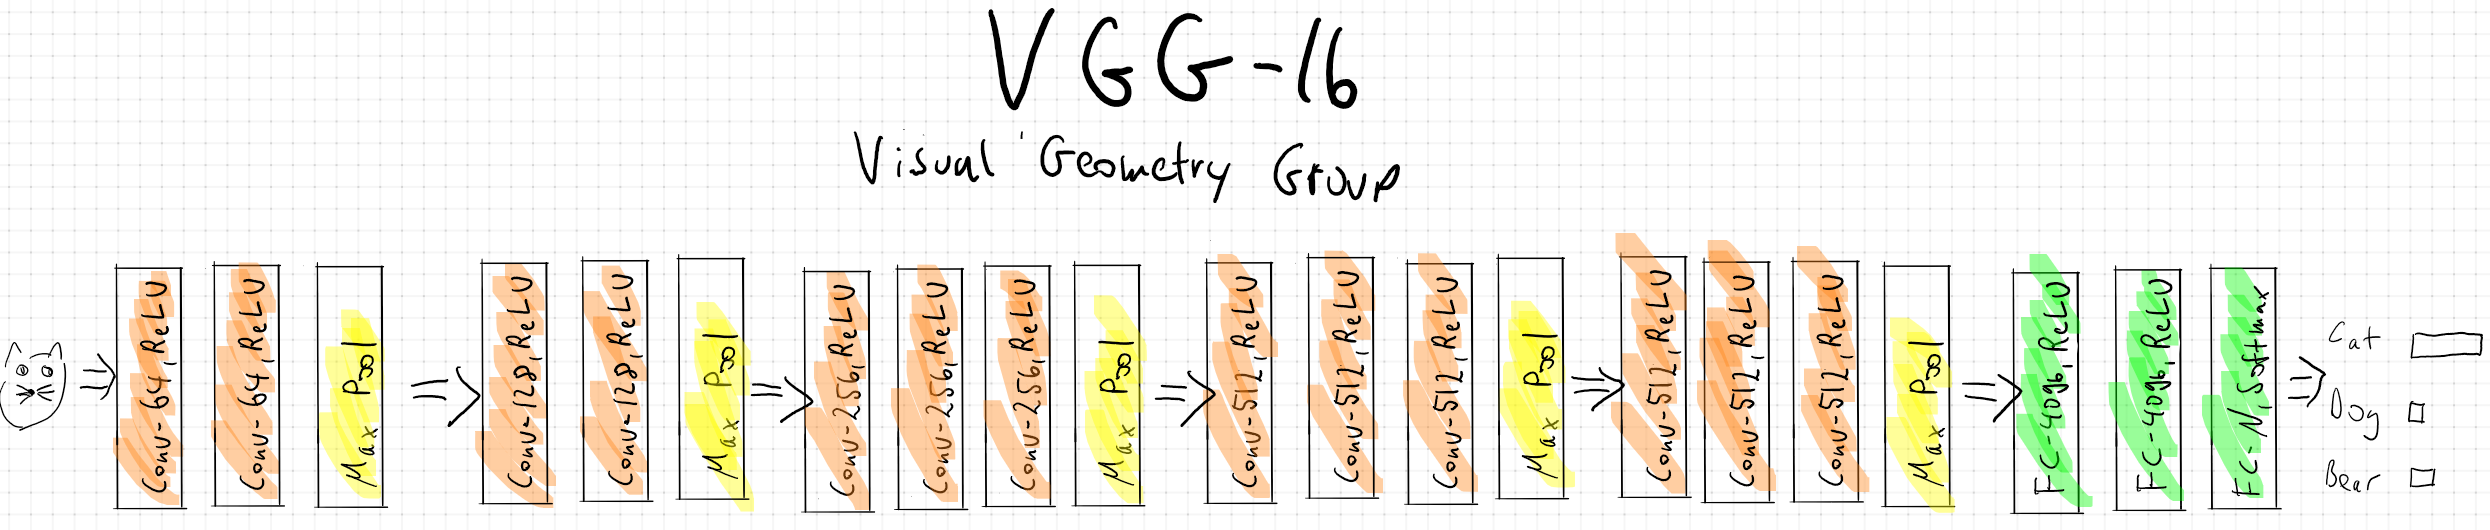 VGG-16
Visual Geometry Group
Conv-64, ReLU
Conv-64, ReLU
Max Pool
Conv-128, ReLU
Conv-128, ReLU
Max Pool
Conv-256, ReLU
Conv-256, ReLU
Conv-256, ReLU
Max Pool
Conv-512, ReLU
Conv-512, ReLU
Conv-512, ReLU
Max Pool
Conv-512, ReLU
Conv-512, ReLU
Conv-512, ReLU
Max Pool
FC-4096, ReLU
FC-4096, ReLU
FC-N, Softmax
Cat
Dog
Bear